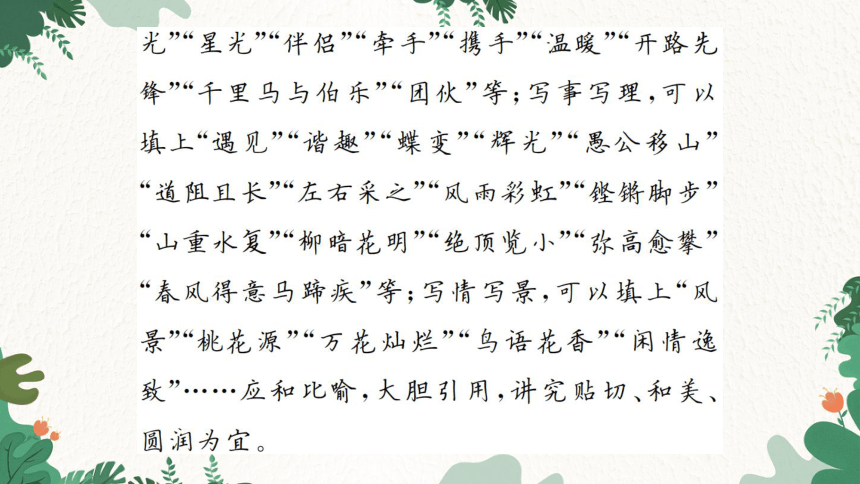 光”“星光”“伴侣”“牵手”“携手”“温暖”“开路先
锋”“千里马与伯乐”“团伙”等;写事写理,可以
填上“遇见”“谐趣”“蝶变”“辉光”“愚公移山”
“道阻且长”“左右采之”“风雨彩虹”“铿锵脚步”
“山重水复”“柳暗花明”“绝顶览小”“弥高愈攀”
“春风得意马蹄疾”等;写情写景,可以填上“风
景”“桃花源”“万花灿烂”“鸟语花香”“闲情逸
致”……应和比喻,大胆引用,讲究贴切、和美、
圆润为宜。